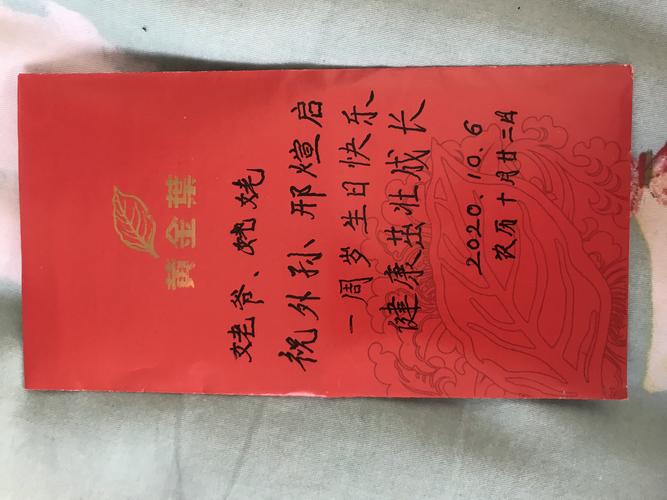 黄金葉
姥爷、姥姥
祝外孙邢煊启
一周岁生日快乐
健康茁壮成长
2020.10.6
农历十月廿三日